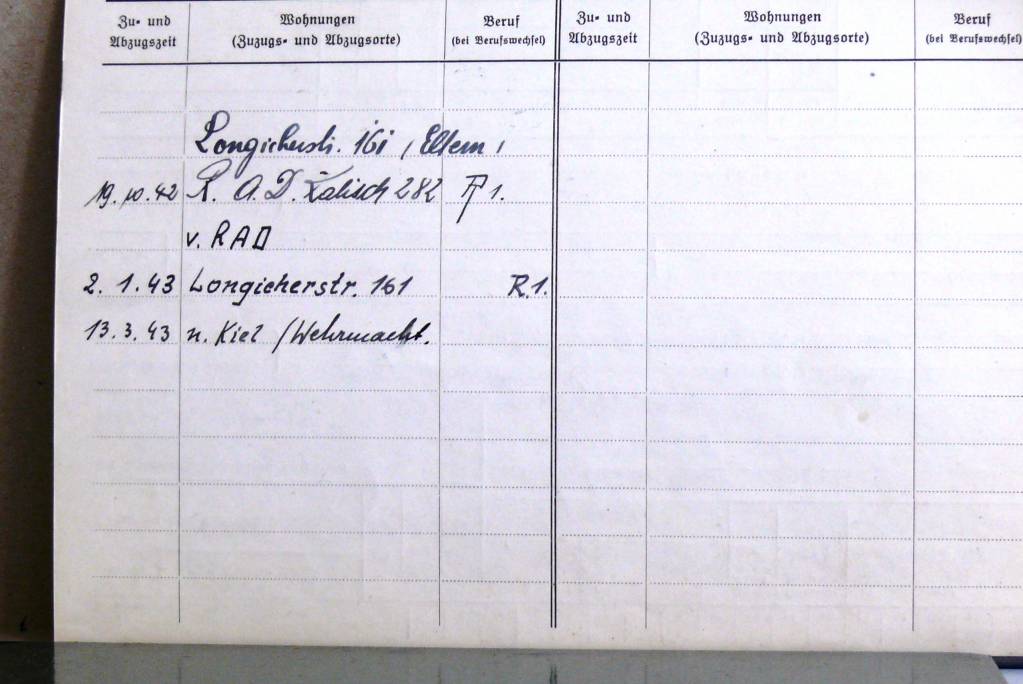 Zu- und Abzugszeit
Wohnungen (Zuzugs- und Abzugsorte)
Beruf (bei Berufswechsel)
Zu- und Abzugszeit
Wohnungen (Zuzugs- und Abzugsorte)
Beruf (bei Berufswechsel)
Longicherstr. 161 (Eltern)
19.10.42 R. A. D. Kalisch 282 1.
v. RAD
2. 1. 43 Longicherstr. 161 R.1.
13. 3. 43 n. Kiel /Wehrmacht.